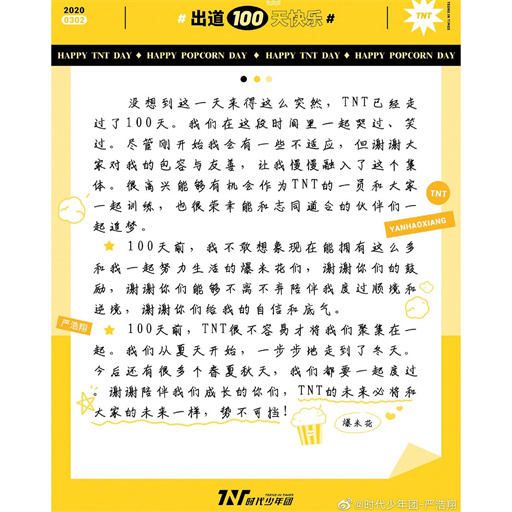 2020
0302
#出道100天快乐#
TEENS IN TIMES
TNT
HAPPY TNT DAY ♦ HAPPY POPCORN DAY ♦ HAPPY TNT DAY ♦ HAPPY POPCORN DAY
没想到这一天来得这么突然，TNT已经走
过了100天。我们在这段时间里一起哭过、笑
过。尽管刚开始我会有一些不适应，但谢谢大
家对我的包容与友善，让我慢慢融入了这个集
体。很高兴能够有机会作为TNT的一员和大家
一起训练，也很荣幸能和志同道合的伙伴们一
起追梦。
TNT
YANHAOXIANG
100天前，我不敢想象现在能拥有这么多
和我一起努力生活的爆米花们，谢谢你们的鼓
励，谢谢你们能够不离不弃陪伴我度过顺境和
逆境，谢谢你们给我的自信和底气。
严浩翔
100天前，TNT很不容易才将我们聚集在一
起。我们从夏天开始，一步步地走到了冬天。
今后还有很多个春夏秋天，我们都要一起度过
。谢谢陪伴我们成长的你们，TNT的未来必将和
大家的未来一样，势不可挡！
爆米花
TNT TEENS IN TIMES 时代少年团
@时代少年团-严浩翔